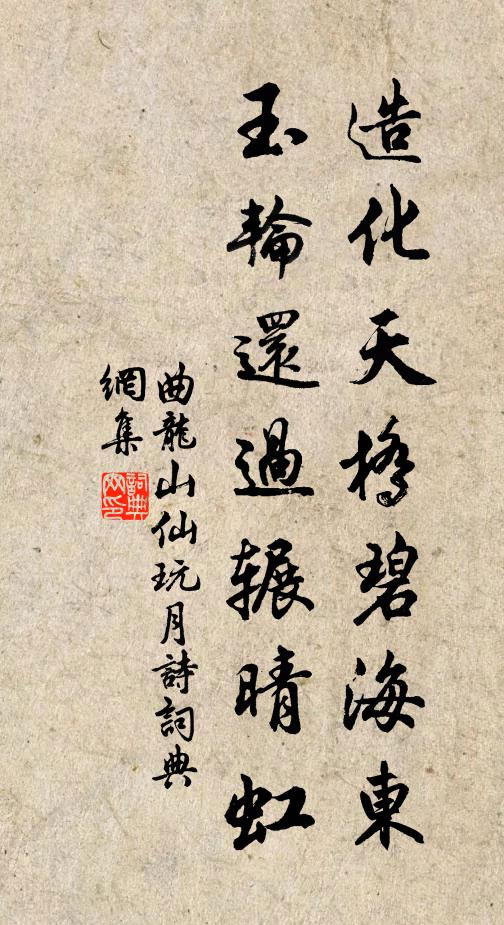 造化天橋碧海東
玉輪還過輾晴虹
曲龍山仙玩月詩詞典
網集
詞典網印